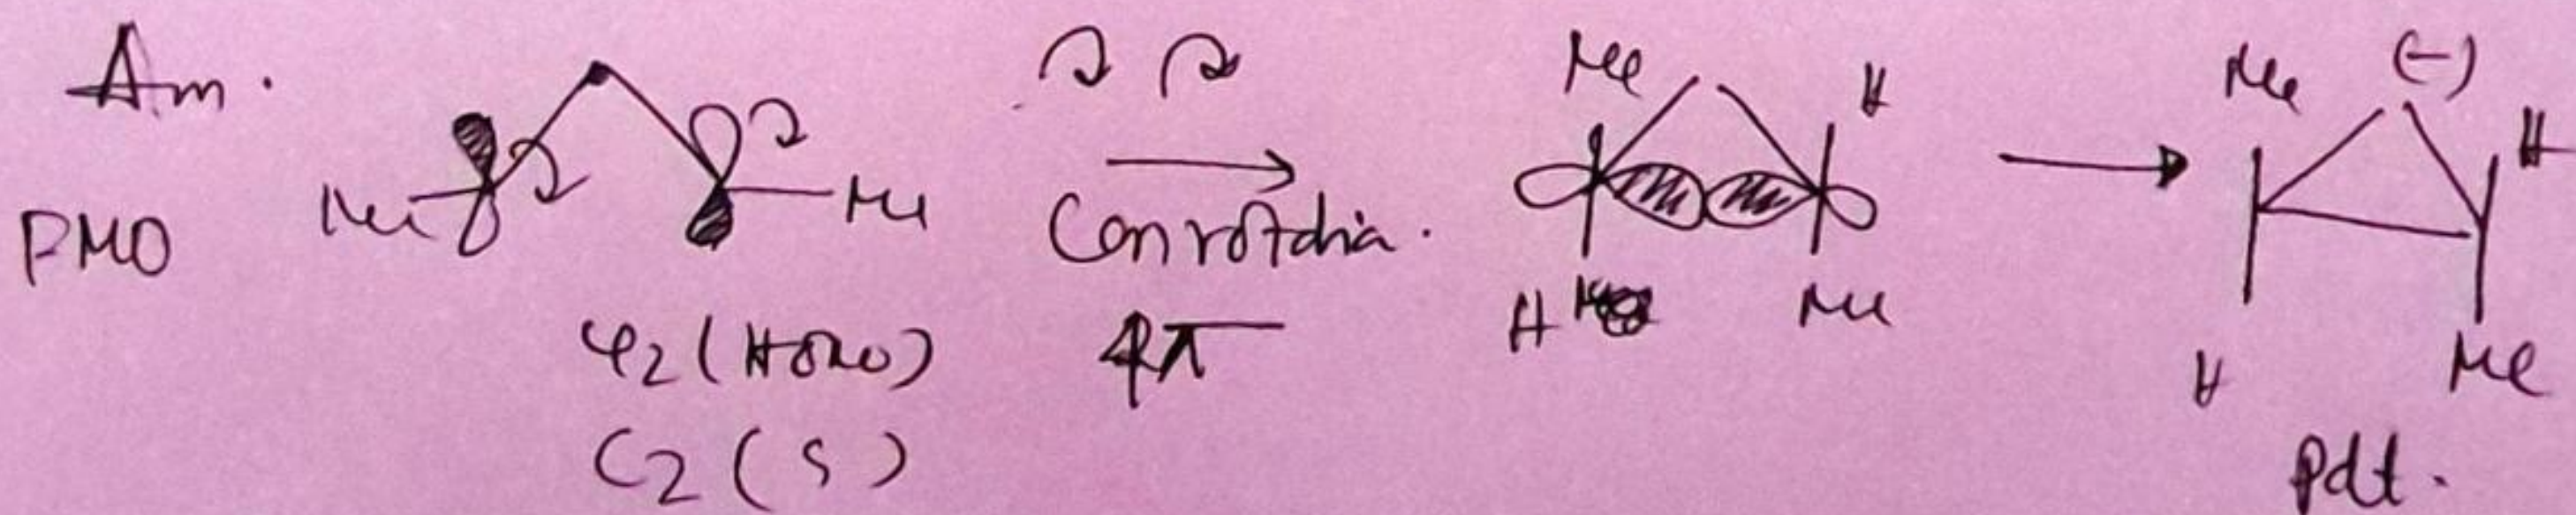 Am.
FMO
Me Me
ψ2 (HOMO)
C2 (S)
Conrotatn.
4π
Me H
H Me
Me (-) H
H Me
Pdt.